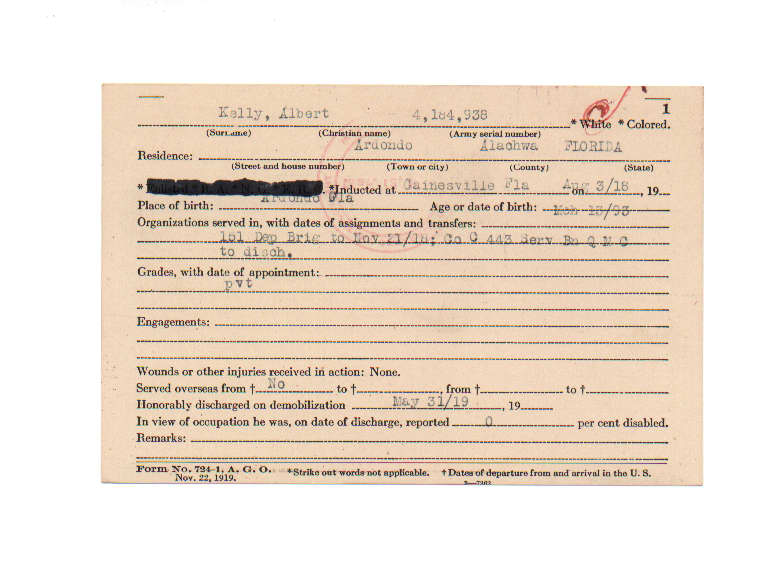 1
Kelly, Albert 4,184,938 * White * Colored.
(Surname) (Christian name) (Army serial number)
Ardondo Alachwa FLORIDA
Residence:
(Street and house number) (Town or city) (County) (State)
* *Inducted at Gainesville Fla on Aug 3/18, 19
Place of birth: Ardondo Fla Age or date of birth: Mch 13/93
Organizations served in, with dates of assignments and transfers:
161 Dep Brig to Nov 21/18; Co G 443 Serv Bn Q M C
to disch.
Grades, with date of appointment:
pvt
Engagements:
Wounds or other injuries received in action: None.
Served overseas from † No to †, from † to †
Honorably discharged on demobilization May 31/19, 19
In view of occupation he was, on date of discharge, reported 0 per cent disabled.
Remarks:
Form No. 724-1, A. G. O. *Strike out words not applicable. † Dates of departure from and arrival in the U. S.
Nov. 22, 1919.